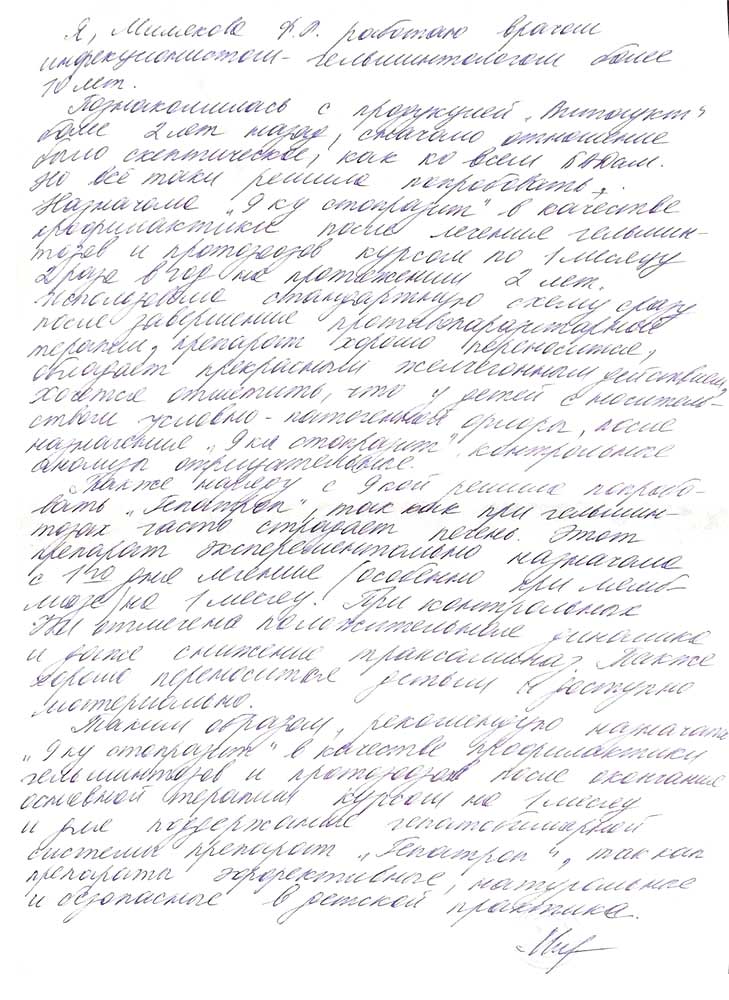 Я, Милякова Ф.Р. работаю врачом
инфекционистом-гельминтологом более
10 лет.
Познакомилась с продукцией „Витаукт"
более 2 лет назад, сначало отношение
было скептическое, как ко всем БАДам.
Но всё таки решила попробовать.
Назначала „Яку стопразит" в качестве
профилактики после лечение гельмин-
тозов и протозоозов курсом по 1 месяцу
2 раза в год на протяжении 2 лет.
Использовала стандартную схему сразу
после завершение противопаразитарные
терапии, препарат хорошо переносится,
обладает прекрасными желчегонным действием,
хочется отметить, что у детей с носитель-
ством условно-патогенной флоры, после
назначение „Яка стопразит" контрольные
анализы отрицательные.
Также наряду с Якой решила попробо-
вать „Гепатрон", так как при гельмин-
тозах часто страдает печень. Этот
препарат экспериментально назначала
с 1го дня лечение (особенно при лямб-
лиозе) на 1 месяц. При контрольных
отмечена положительная динамика
и даже снижение трансаминаз. Также
хорошо переносится детьми и доступно
материально.
Таким образом, рекомендую назначать
„Яку стопразит" в качестве профилактики
гельминтозов и протозоозов после окончание
основной терапии курсом на 1 месяц
и для поддержание гепатобилиарной
системы препарат „Гепатрон", так как
препарата эффективные, натуральные
и безопасные в детской практике.